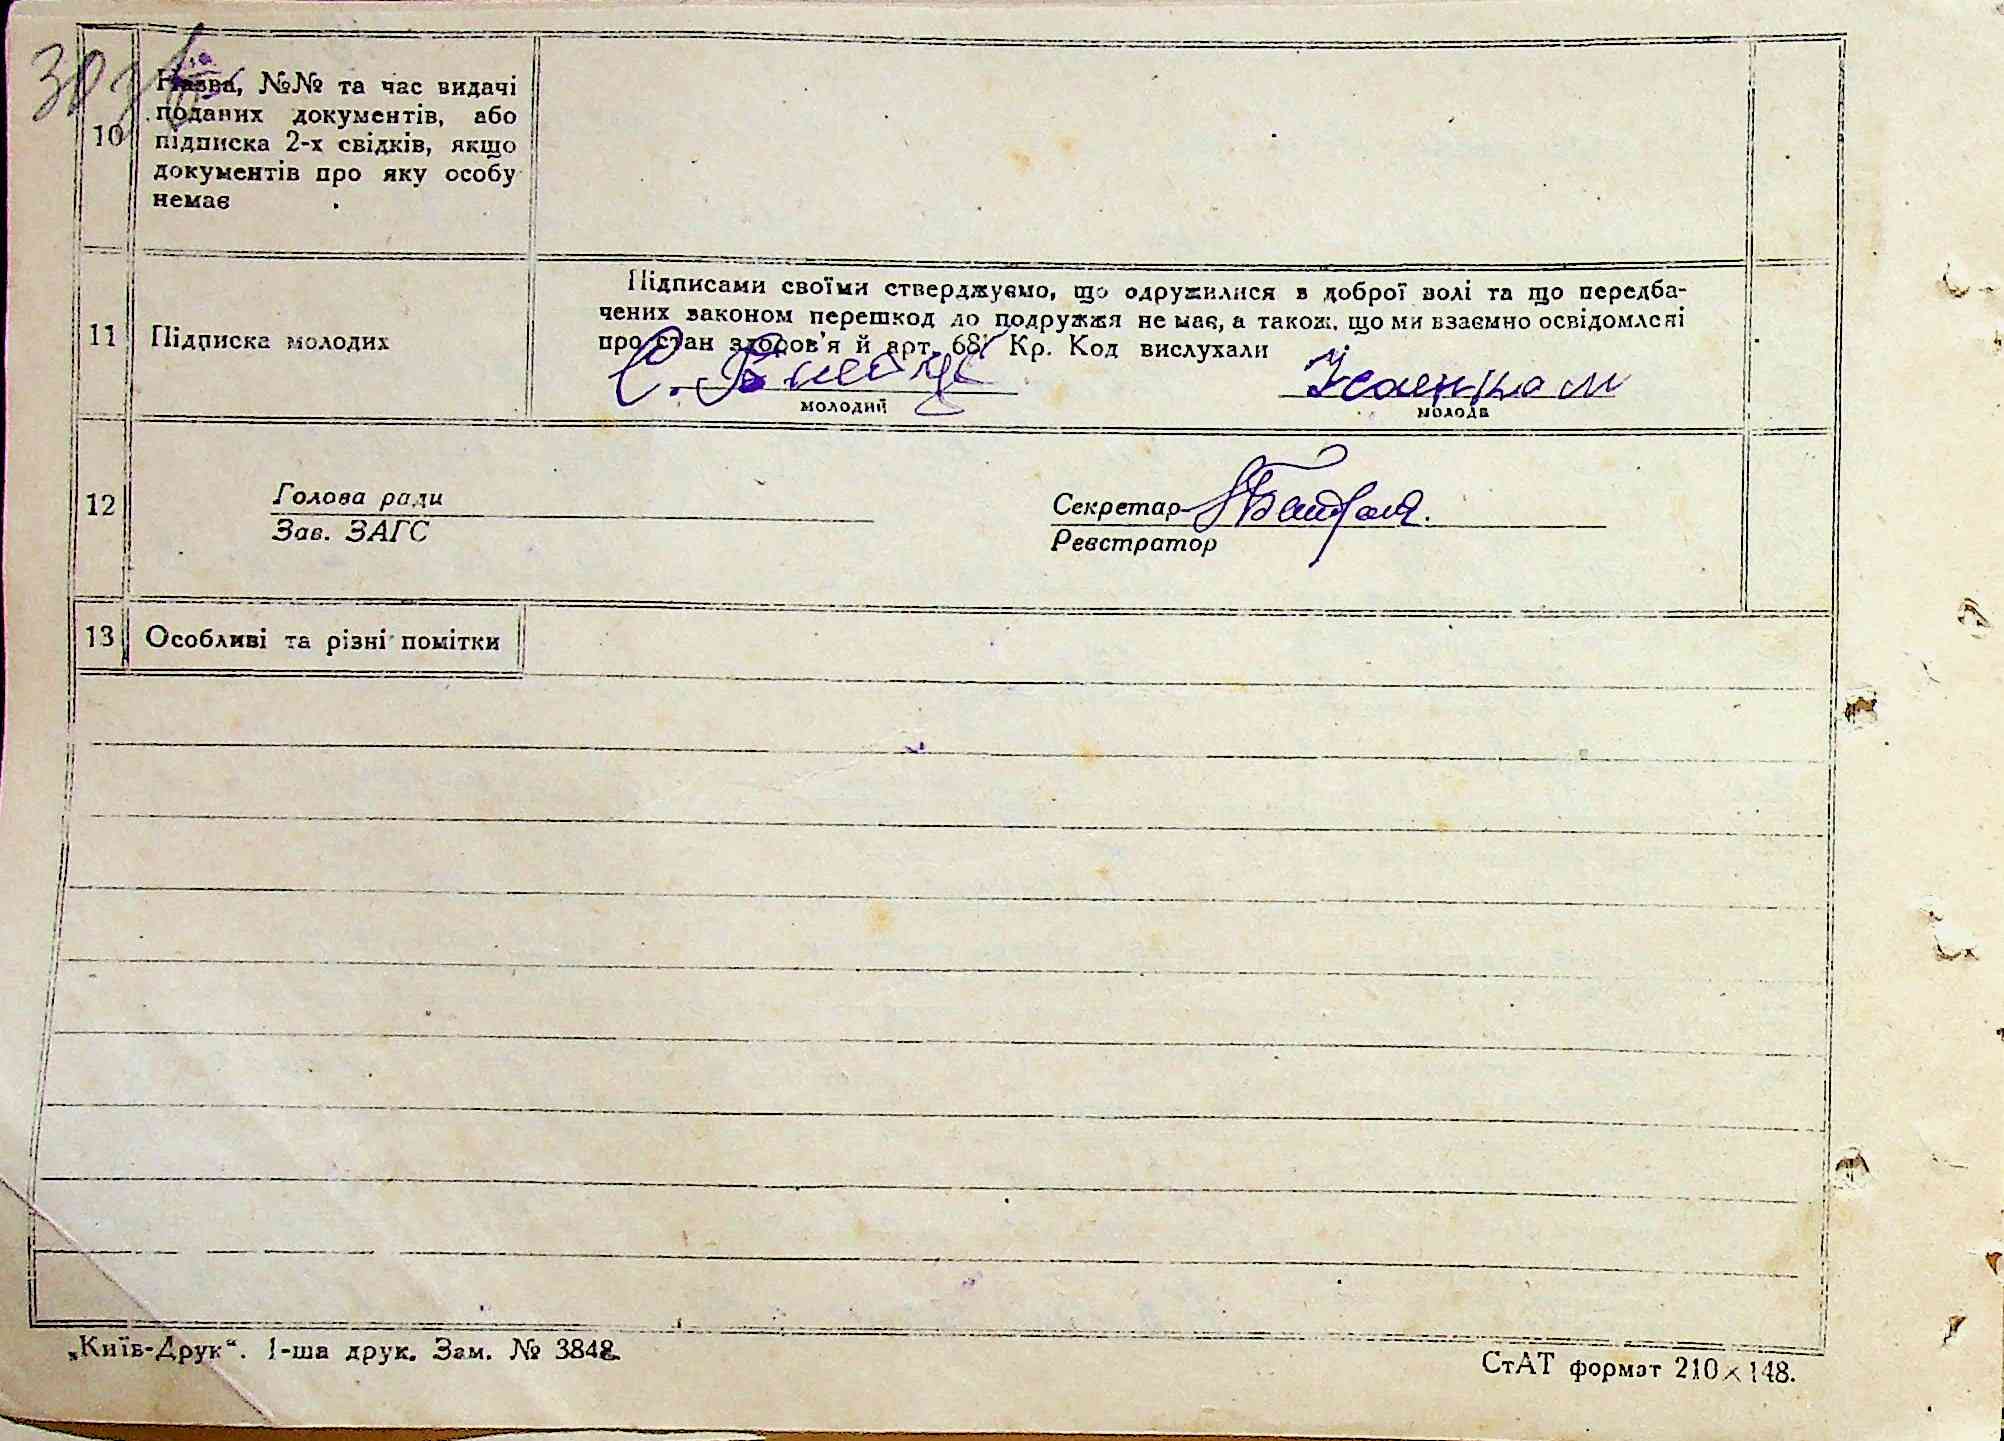 10
Назва, №№ та час видачі
поданих документів, або
підписка 2-х свідків, якщо
документів про яку особу
немає
11
Підписка молодих
Підписами своїми стверджуємо, що одружилися в доброї волі та що передба-
чених законом перешкод до подружжя не має, а також, що ми взаємно освідомлені
про стан здоров'я й арт. 68 Кр. Код вислухали
молодий
молода
12
Голова ради
Зав. ЗАГС
Секретар
Реєстратор
13
Особливі та різні помітки
„Київ-Друк“. 1-ша друк. Зам. № 3848.
СтАТ формат 210×148.